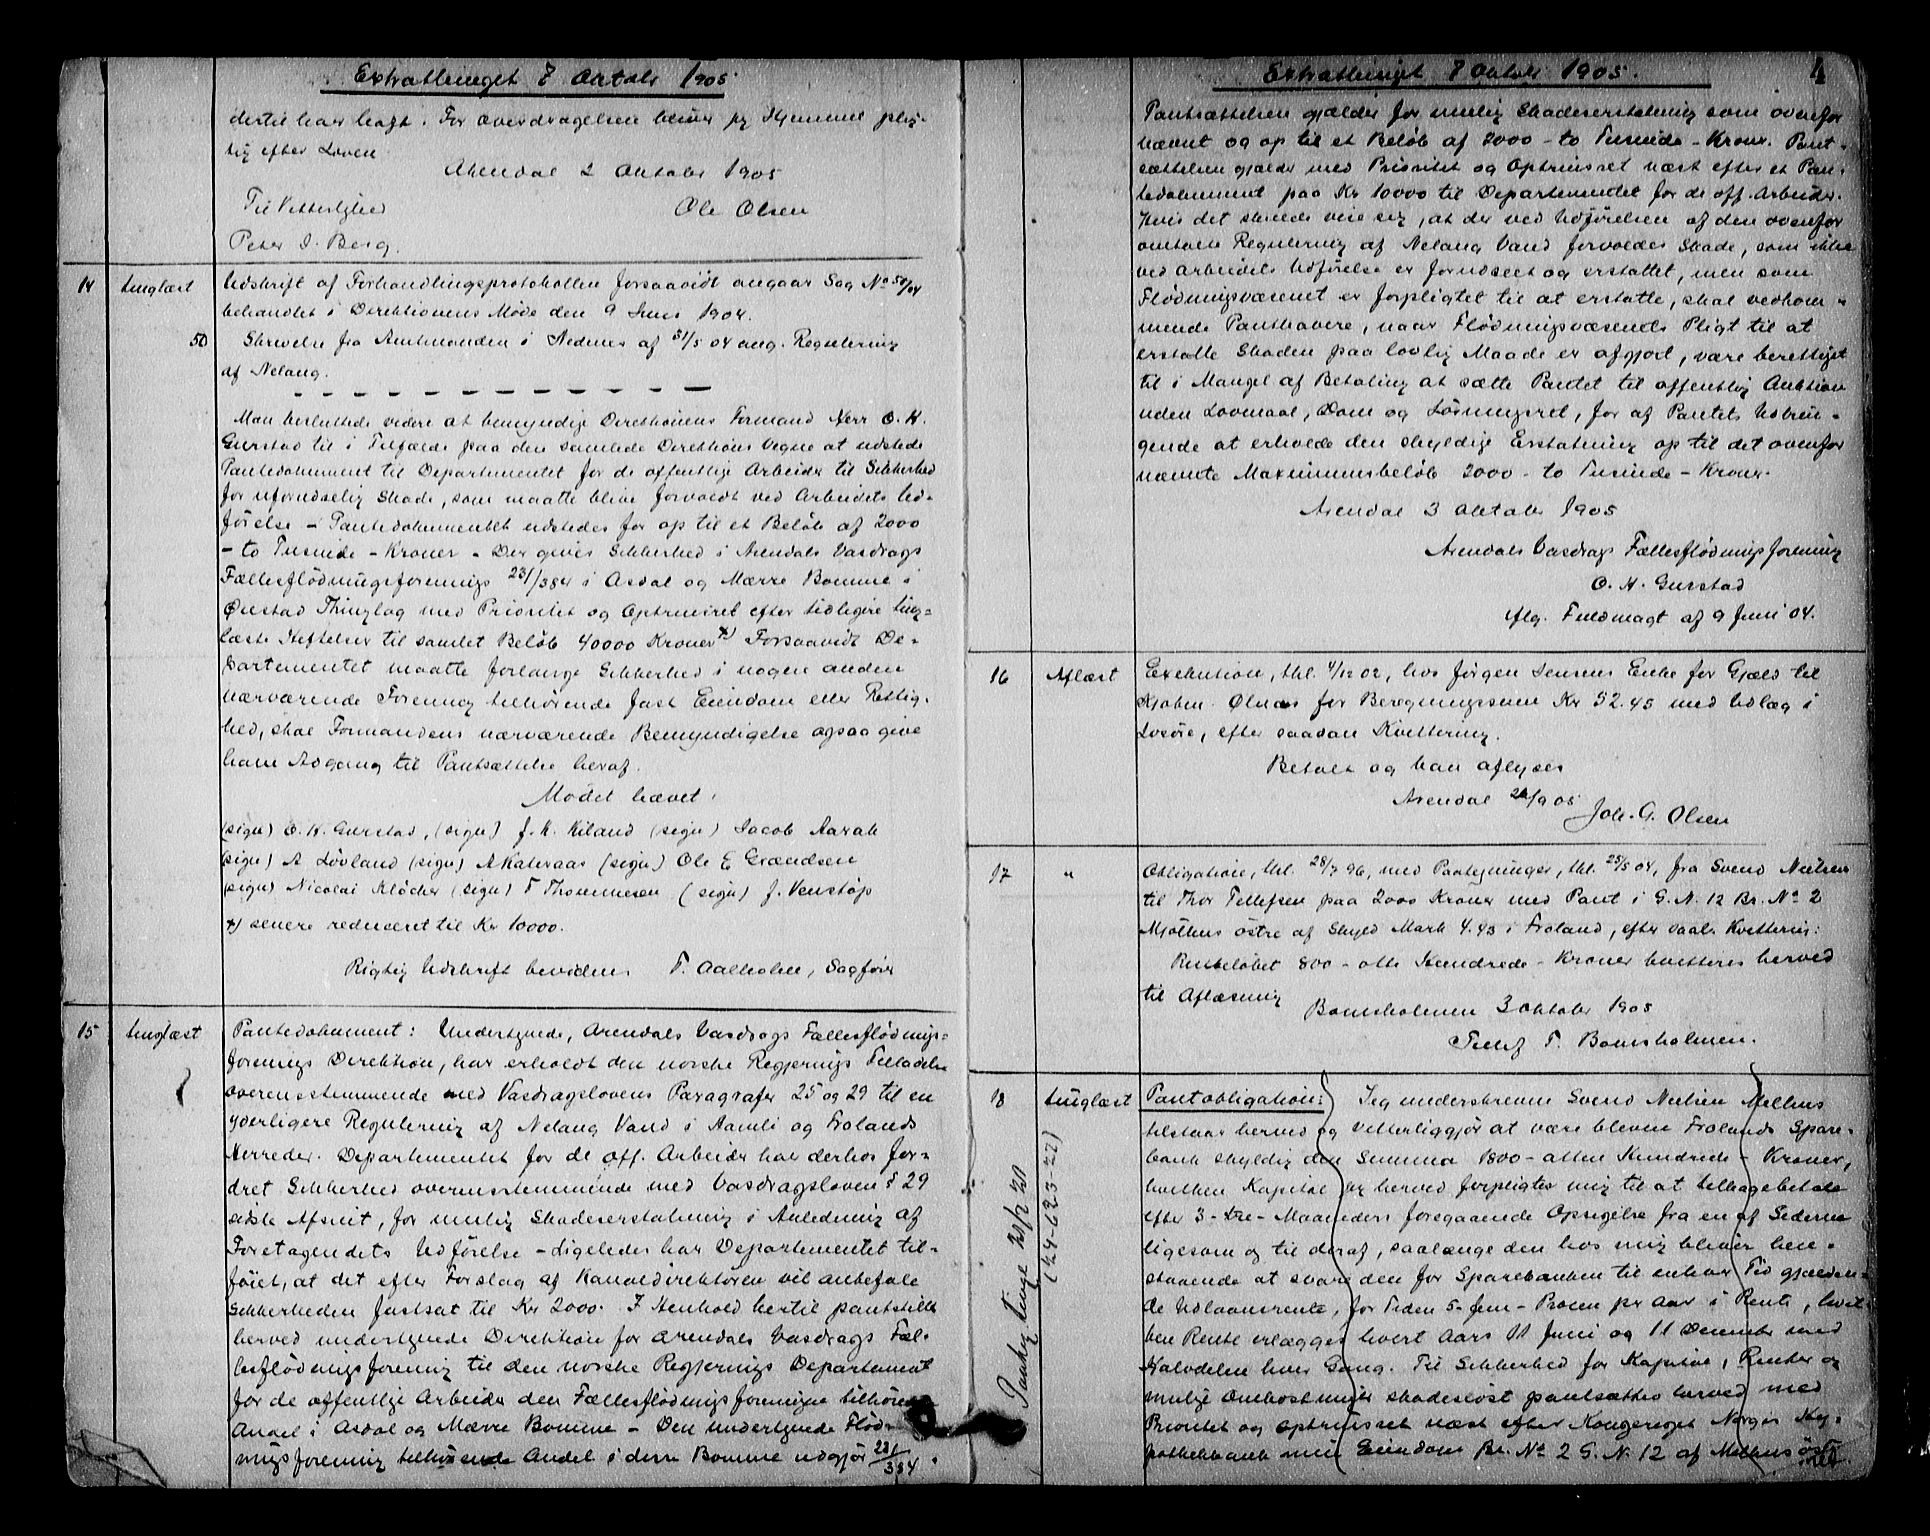 Extrathinget 7 Oktobr 1905
dertil har havt. For overdragelsen bliver jeg Hjemmel plig-
tig efter Loven
Arendal 2 Oktobr 1905
Til Vitterlighed Ole Olsen
Peter J. Berg.
14 tinglæst Udskrift af Forhandlingsprotokollen forsaavidt angaar Sag No 50/04
behandlet i Direktionens Møde den 9 Juni 1904.
50 Skrivelse fra Amtmanden i Nedenes af 31/5 04 ang. Regulering
af Nelaug.
Man besluttede videre at bemyndige Direktionens Formand Herr O. H.
Gurstad til i Tilfælde paa den samlede Direktions Vegne at udstede
Pantedokument til Departementet for de offentlige Arbeider til Sikkerhed
for uforudseelig Skade, som maatte blive forvoldt ved Arbeidets Ud-
førelse - Pantedokumentet udstedes for op til et Beløb af 2000
- to Tusinde - Kroner - Der gives Sikkerhed i Arendals Vasdrags
Fællesflødningsforenings 23/384 i Asdal og Mærre Bomme i
Øiestad Thinglag med Prioritet og Optrinsret efter tidligere ting-
læste Heftelser til samlet Beløb 40000 Kroner x) Forsaavidt De-
partementet maatte forlange Sikkerhed i nogen anden
nærværende Forening tilhørende fast Eiendom eller Rettig-
hed, skal Formandens nærværende Bemyndigelse ogsaa give
ham Adgang til Pantsættelse heraf.
Mødet hævet.
(sign) O. H. Gurstad, (sign) J. K. Kiland (sign) Jacob Aarak
(sign) A Løvland (sign) A Kateraas (sign) Ole E Grændsen
(sign) Nicolai Kløcker (sign) T Thommesen (sign) J. Venstøp
x) senere reduceret til Kr 10000.
Rigtig Udskrift bevidnes T. Aalholm, Sagfører
15 tinglæst Pantedokument: Undertegnede, Arendals Vasdrags Fællesflødnings-
forenings Direktion, har erholdt den norske Regjerings Tilladelse
overensstemmende med Vasdragslovens Paragrafer 25 og 29 til en
yderligere Regulering af Nelaug Vand i Aamli og Frolands
Herreder. Departementet for de off. Arbeider har derhos for-
dret Sikkerhed overensstemmende med Vasdragsloven § 29
sidste Afsnit, for mulig Skadeserstatning i Anledning af
Foretagendets Udførelse - Ligeledes har Departementet til-
føiet, at det efter Forslag af Kanaldirektøren vil anbefale
Sikkerheden fastsat til Kr 2000. I Henhold hertil pantstiller
herved undertegnede Direktion for Arendals Vasdrags Fæl-
lesflødningsforening til den norske Regjerings Departement
for de offentlige Arbeider den Fællesflødningsforeningen tilhørende
Andel i Asdal og Mærre Bomme - Den undertegnede Flød-
ningsforening tilhørende Andel i disse Bomme udgjør 23/384.
Extrathinget 7 Oktobr 1905.
4
Pantsættelsen gjælder for mulig Skadeserstatning som ovenfor
nævnt og op til et Beløb af 2000 - to Tusinde - Kroner. Pant-
sættelsen gjælder med Prioritet og Optrinsret næst efter et Pan-
tedokument paa Kr 10000 til Departementet for de off. Arbeider.
Hvis det skulde vise sig, at der ved Udførelsen af den ovenfor
omtalte Regulering af Nelaug Vand forvoldes Skade, som ikke
ved Arbeidets Udførelse er forudseet og erstattet, men som
Flødningsvæsenet er forpligtet til at erstatte, skal vedkom-
mende Panthavere, naar Flødningsvæsenets Pligt til at
erstatte Skaden paa lovlig Maade er afgjort, være berettiget
til i Mangel af Betaling at sætte Pantet til offentlig Auktion
uden Lovmaal, Dom og Løsningsret, for af Pantets Udbrin-
gende at erholde den skyldige Erstatning op til det ovenfor
nævnte Maximumsbeløb 2000 - to Tusinde - Kroner.
Arendal 3 Oktobr 1905
Arendals Vasdrags Fællesflødningsforening
O. H. Gurstad
iflg. Fuldmagt af 9 Juni 04.
16 Aflæst Exekution, thl. 4/12 02, hos Jørgen Jensens Enke for Gjæld til
Kjøbm. Olsen for Beregningssum Kr 52.45 med Udlæg i
Løsøre, efter saadan Kvittering.
Betalt og kan aflyses
Arendal 26/9 05
Joh. G. Olsen
17 " Obligation, thl. 28/7 96, med Paategninger, thl. 25/5 04, fra Svend Nielsen
til Thor Tellefsen paa 2000 Kroner med Pant i G. N. 12 Br. No 2
Mjølhus østre af Skyld Mark 4.43 i Froland, efter saal. Kvittering:
Restbeløbet 800 - otte Hundrede - Kroner kvitteres herved
til Aflæsning
Bomsholmen 3 Oktobr 1905
Tellef T. Bomsholmen.
18 tinglæst Pantobligation: Jeg underskrevne Svend Nielsen Mølhus
tilstaar herved og vitterliggjør at være bleven Frolands Spare-
bank skyldig den Summa 1800 - atten Hundrede - Kroner,
hvilken Kapital jeg herved forpligter mig til at tilbagebetale
efter 3 - tre - Maaneders foregaaende Opsigelse fra en af Siderne
ligesom og til deraf, saalænge den hos mig bliver hen-
staaende at svare den for Sparebanken til enhver Tid gjælden-
de Udlaansrente, for Tiden 5 - fem - Procent pr Aar i Rente, hvil-
ken Rente erlægges hvert Aars 11 Juni og 11 December med
Halvdelen hver Gang. Til Sikkerhed for Kapital, Renter og
mulige Omkostninger skadesløst pantsættes herved med
Prioritet og Optrinsret næst efter Kongeriget Norges Hy-
pothekbank min Eiendom Br. No 2 G. N. 12 af Mølhus østre
(44-625-27)